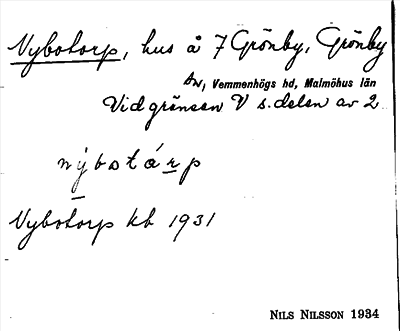 Nybotorp, hus å 7 Grönby, Grönby
sn, Vemmenhögs hd, Malmöhus län
Vid gränsen V s. delen av 2
nybotárp
Nybotorp kb 1931
NILS NILSSON 1934